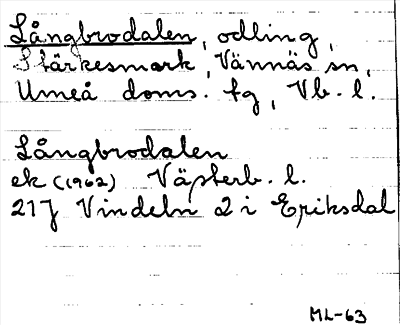 Långbrodalen, odling,
Stärkesmark, Vännäs sn,
Umeå doms. tg, Vb. l.
Långbrodalen
ek (1962) Västerb. l.
21J Vindeln 2 i Eriksdal
ML-63